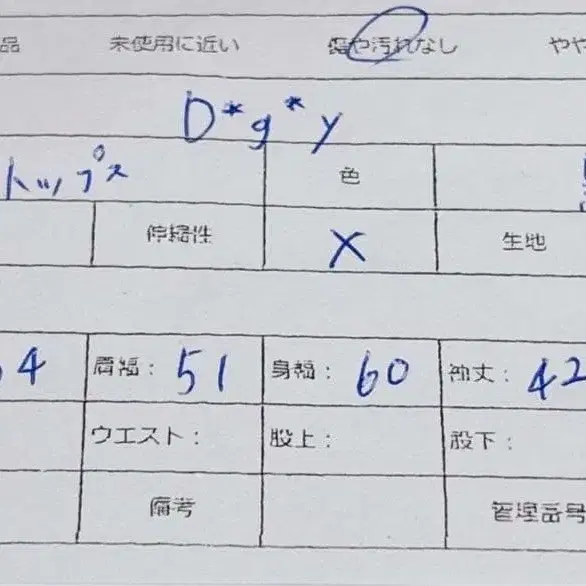 品 未使用に近い 傷や汚れなし やや
D*g*y
トップス 色
伸縮性 X 生地
4 肩幅: 51 身幅: 60 袖丈: 42
ウエスト: 股上: 股下:
備考 管理番号